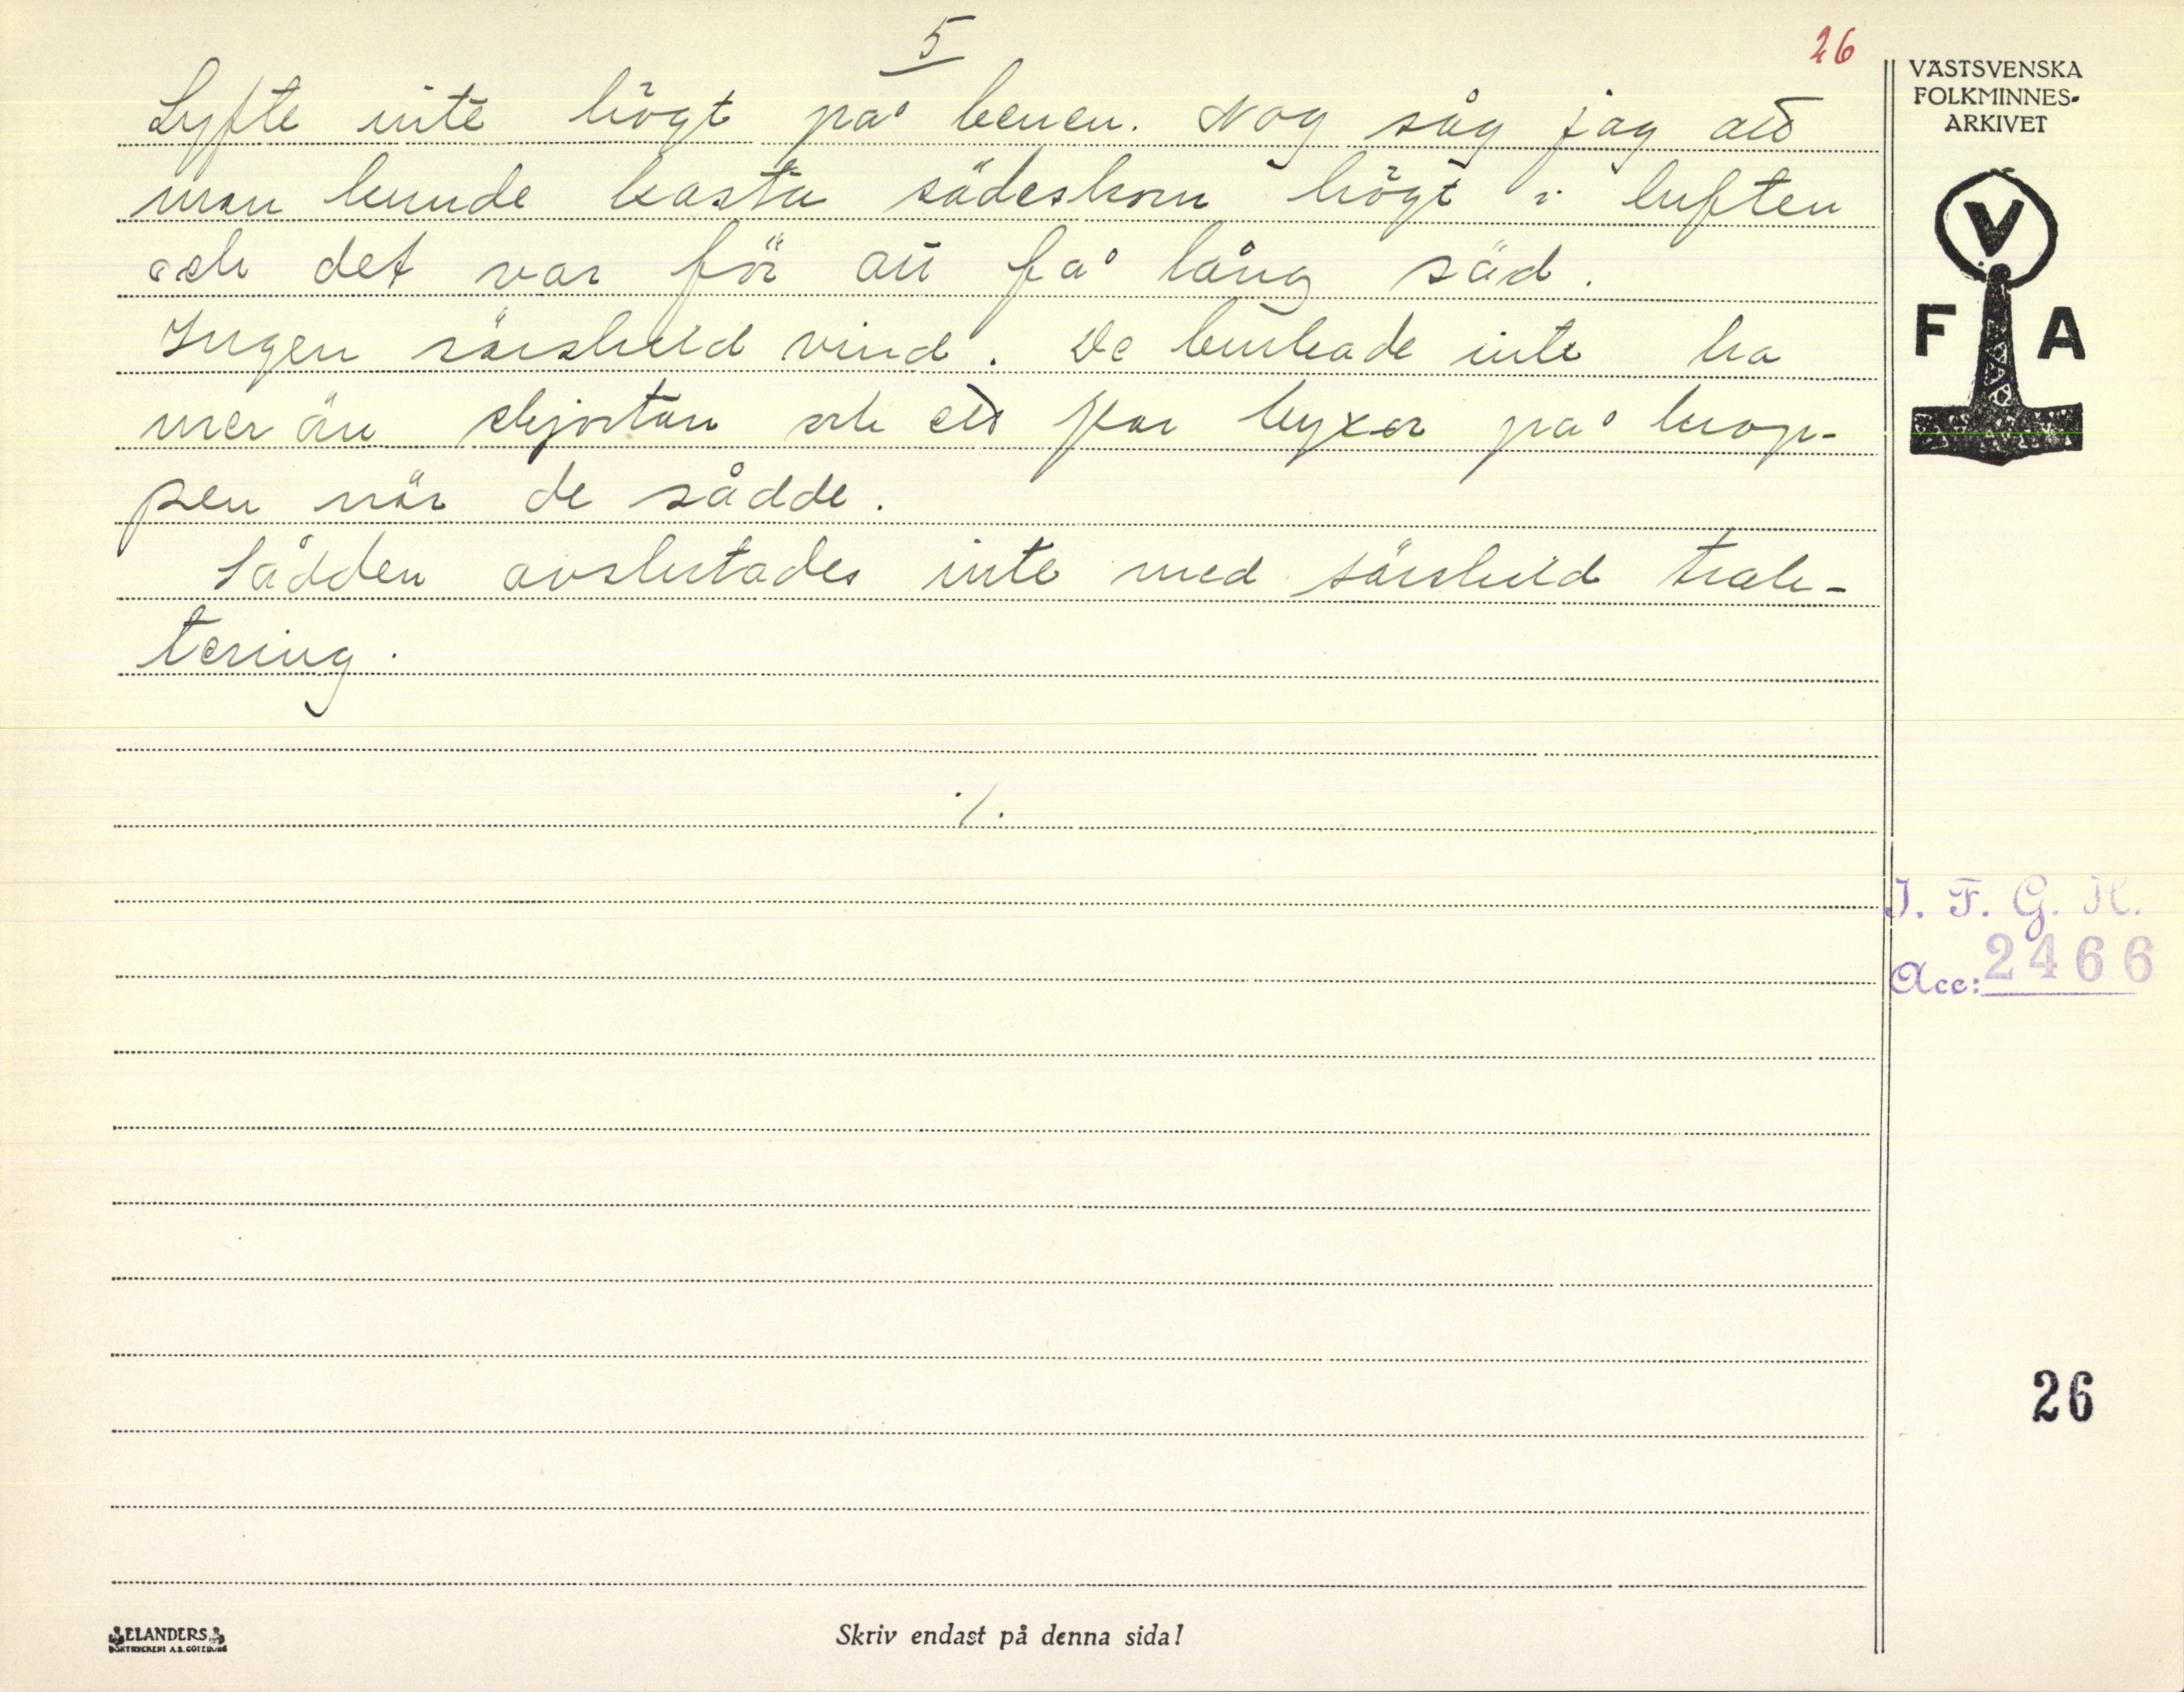 5
26
Lyfte inte högt på benen. Nog såg jag att
man kunde kasta sädeskorn högt i luften
och det var för att få lång säd.
Ingen särskild vind. De brukade inte ha
mer än skjortan och ett par byxor på krop-
pen när de sådde.
Sådden avslutades inte med särskild trak-
tering.
./.
VÄSTSVENSKA
FOLKMINNES-
ARKIVET
V
F A
I. F. G. H.
Acc: 2466
26
ELANDERS
BOKTRYCKERI A.B. GÖTEBORG
Skriv endast på denna sida!